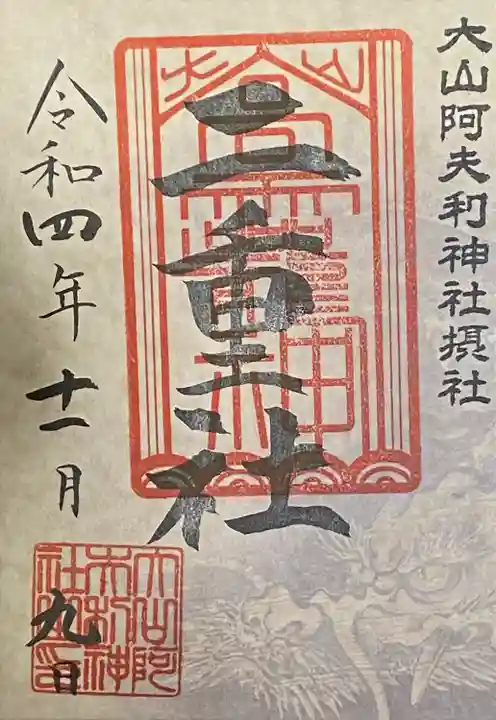 大山阿夫利神社摂社
二重社
令和四年十一月
九日
大山
大山阿
夫利神
社之印